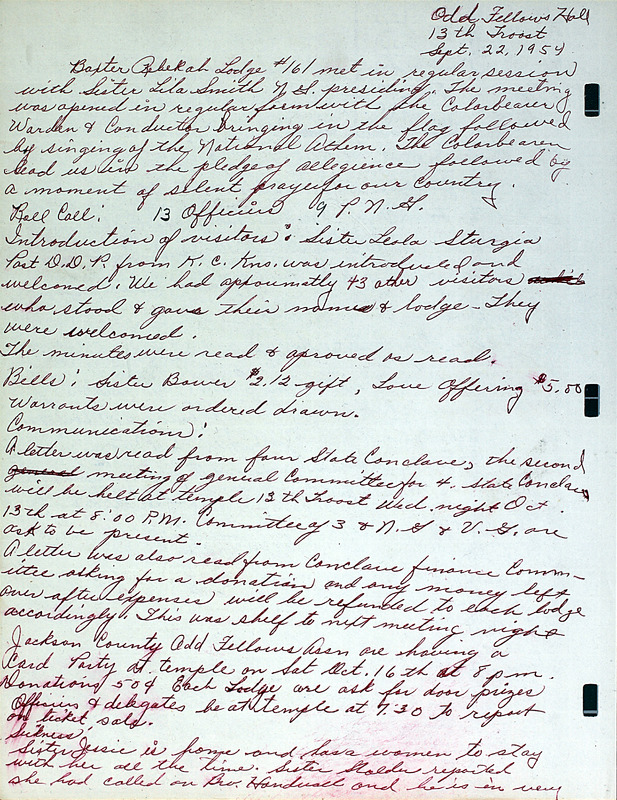 Odd Fellows Hall
13th Troost
Sept. 22, 1954
Baxter Rebekah Lodge #161 met in regular session
with Sister Lila Smith N.G. presiding. The meeting
was opened in regular form with the Colorbearer
Warden & Conductor bringing in the flag followed
by singing of the National Athem. The Colorbearer
lead us in the pledge of allegience followed by
a moment of silent prayer for our Country.
Roll Call: 13 Officers 9 P.N.G.
Introduction of visitors: Sister Leola Sturgia
Past D.D.P. from K.C. Kns. was introduced and
welcomed. We had appoximatly 43 other visitors
who stood & gave their names & lodge - They
were welcomed.
The minutes were read & aproved as read.
Bills: Sister Bower $2.12 gift, Love Offering $5.00
Warrants were ordered drawn.
Communications:
A letter was read from four State Conclave, the second
general meeting of general Committee for 4. State Conclave
will be helt at temple 13th Troost Wed. night Oct.
13th at 8:00 P.M. Committee of 3 & N.G & V.G. are
ask to be present.
A letter was also read from Conclave finance Comm-
ittee asking for a donation and any money left
over after expenses will be refunded to each lodge
accordingly. This was shelf to next meeting night
Jackson County Odd Fellows Assn are having a
Card Party at temple on Sat Oct. 16th at 8 p.m.
Donations 50¢ Each Lodge are ask for door prizes
Officers & delegates be at temple at 7.30 to report
on ticket sold.
Sickness.
Sister Josie is home and has a women to stay
with her all the time. Sister Stalder reported
she had called on Bro. and he is in very